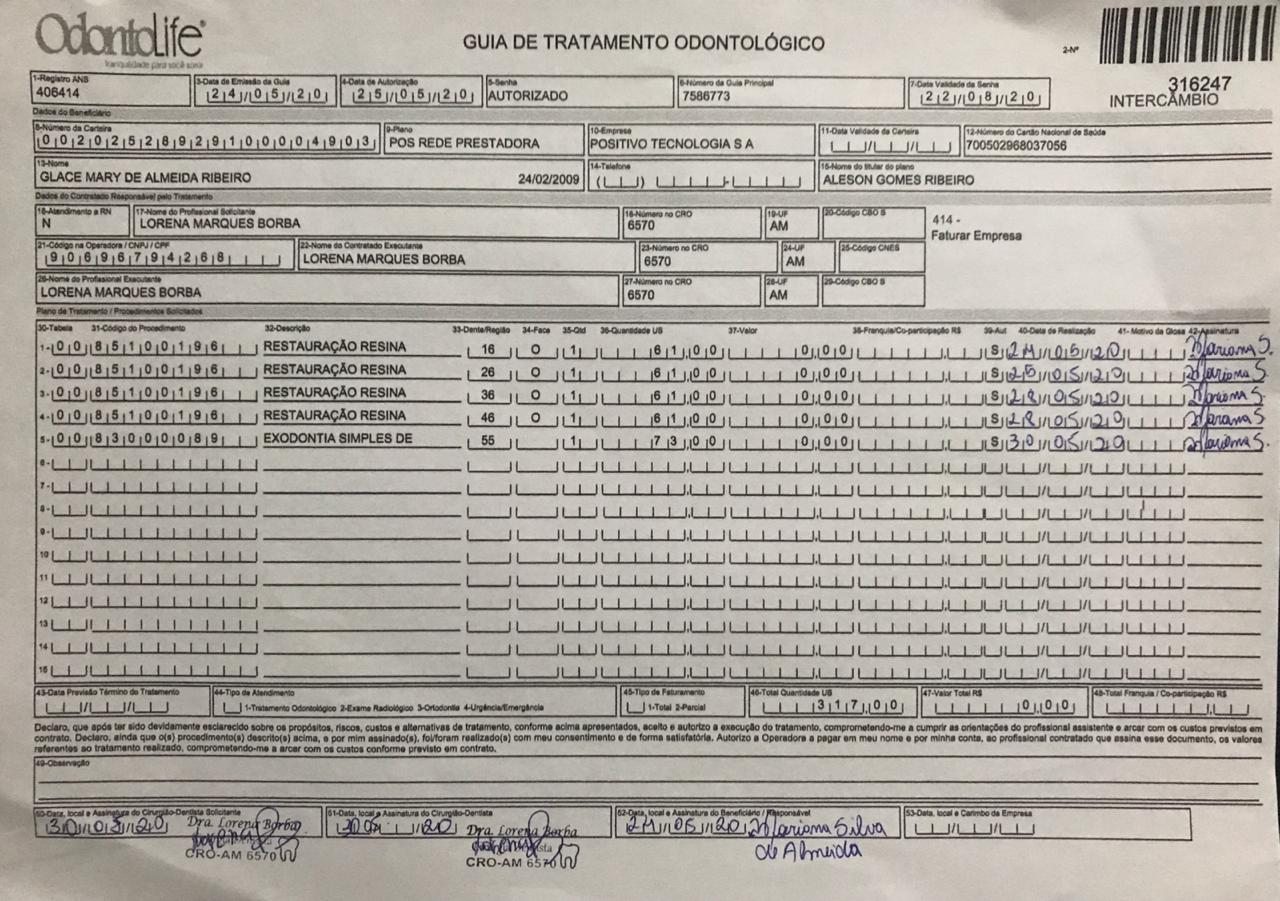 OdontoLife
tranquilidade para você sorrir
GUIA DE TRATAMENTO ODONTOLÓGICO
2-Nº
316247
INTERCÂMBIO
1-Registro ANS 3-Data de Emissão da Guia 4-Data de Autorização 5-Senha 6-Número da Guia Principal 7-Data Validade da Senha
406414 24/05/20 25/05/20 AUTORIZADO 7586773 22/08/20
Dados do Beneficiário
8-Número da Carteira 9-Plano 10-Empresa 11-Data Validade da Carteira 12-Número do Cartão Nacional de Saúde
00202528929100004903 POS REDE PRESTADORA POSITIVO TECNOLOGIA S A 700502968037056
13-Nome 14-Telefone 15-Nome do titular do plano
GLACE MARY DE ALMEIDA RIBEIRO 24/02/2009 ALESON GOMES RIBEIRO
Dados do Contratado Responsável pelo Tratamento
16-Atendimento a RN 17-Nome do Profissional Solicitante 18-Número no CRO 19-UF 20-Código CBO S
N LORENA MARQUES BORBA 6570 AM
414 -
Faturar Empresa
21-Código na Operadora / CNPJ / CPF 22-Nome do Contratado Executante 23-Número no CRO 24-UF 25-Código CNES
90696794268 LORENA MARQUES BORBA 6570 AM
26-Nome do Profissional Executante 27-Número no CRO 28-UF 29-Código CBO S
LORENA MARQUES BORBA 6570 AM
Plano de Tratamento / Procedimentos Solicitados
30-Tabela 31-Código do Procedimento 32-Descrição 33-Dente/Região 34-Face 35-Qtd 36-Quantidade US 37-Valor 38-Franquia/Co-participação R$ 39-Aut 40-Data de Realização 41- Motivo da Glosa 42-Assinatura
1- 00 85100196 RESTAURAÇÃO RESINA 16 O 1 61,00 0,00 S 24/05/20 Mariana S.
2- 00 85100196 RESTAURAÇÃO RESINA 26 O 1 61,00 0,00 S 25/05/20 Mariana S.
3- 00 85100196 RESTAURAÇÃO RESINA 36 O 1 61,00 0,00 S 28/05/20 Mariana S.
4- 00 85100196 RESTAURAÇÃO RESINA 46 O 1 61,00 0,00 S 28/05/20 Mariana S
5- 00 83000089 EXODONTIA SIMPLES DE 55 1 73,00 0,00 S 30/05/20 Mariana S.
6-
7-
8-
9-
10
11
12
13
14
15
43-Data Previsão Término do Tratamento 44-Tipo de Atendimento 45-Tipo de Faturamento 46-Total Quantidade US 47-Valor Total R$ 48-Total Franquia / Co-participação R$
1-Tratamento Odontológico 2-Exame Radiológico 3-Ortodontia 4-Urgência/Emergência 1-Total 2-Parcial 317,00 0,00
Declaro, que após ter sido devidamente esclarecido sobre os propósitos, riscos, custos e alternativas de tratamento, conforme acima apresentados, aceito e autorizo a execução do tratamento, comprometendo-me a cumprir as orientações do profissional assistente e arcar com os custos previstos em
contrato. Declaro, ainda que o(s) procedimento(s) descrito(s) acima, e por mim assinado(s), foi/foram realizado(s) com meu consentimento e de forma satisfatória. Autorizo a Operadora a pagar em meu nome e por minha conta, ao profissional contratado que assina esse documento, os valores
referentes ao tratamento realizado, comprometendo-me a arcar com os custos conforme previsto em contrato.
49-Observação
50-Data, local e Assinatura do Cirurgião-Dentista Solicitante 51-Data, local e Assinatura do Cirurgião-Dentista 52-Data, local e Assinatura do Beneficiário / Responsável 53-Data, local e Carimbo da Empresa
30/05/20 Dra. Lorena Borba Dra. Lorena Borba 24/05/20 Mariana Silva
de Almeida
CRO-AM 6570 CRO-AM 6570